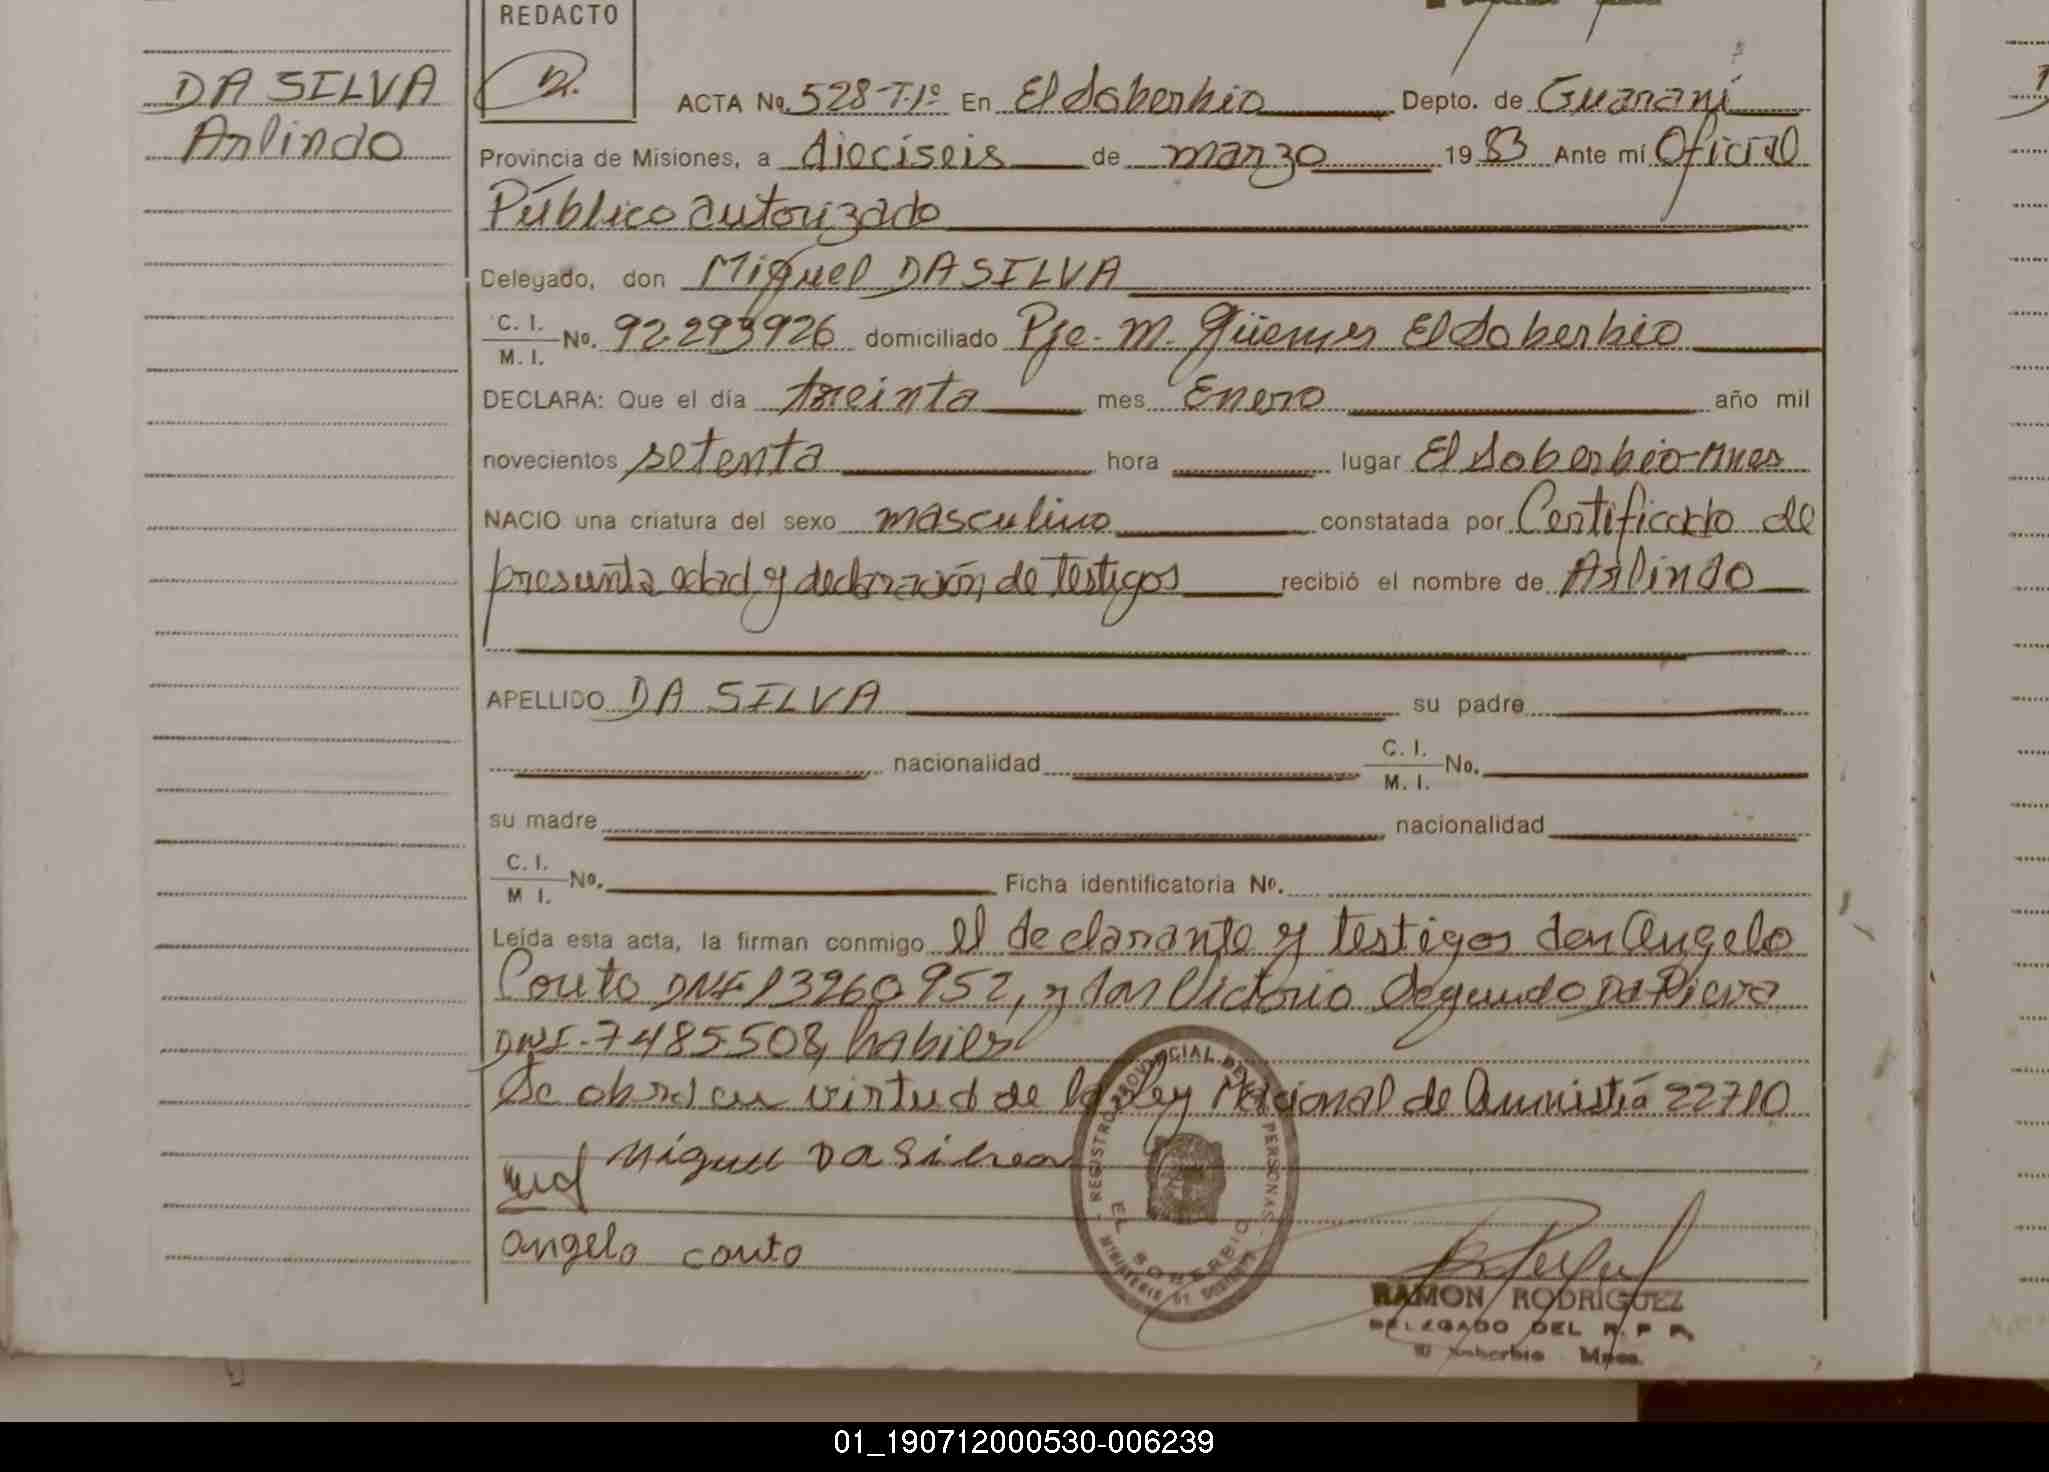 REDACTO
DA SILVA
Arlindo
ACTA No. 528-T.1º En El Soberbio Depto. de Guaraní
Provincia de Misiones, a dieciseis de marzo 1983 Ante mí Oficial
Público autorizado
Delegado, don Miguel DA SILVA
C. I. M. I. No. 92.293926 domiciliado Pje. M. Güemes El Soberbio
DECLARA: Que el día treinta mes Enero año mil
novecientos setenta hora lugar El Soberbio-Mnes
NACIO una criatura del sexo masculino constatada por Certificado de
presunta edad y declaración de testigos recibió el nombre de Arlindo
APELLIDO DA SILVA su padre
nacionalidad C. I. M. I. No.
su madre nacionalidad
C. I. M I. No. Ficha identificatoria No.
Leída esta acta, la firman conmigo el declarante y testigos don Angelo
Couto DNI-13260952, y don Victorio Segundo Da
DNI-7485508, habiles
Se obra en virtud de la Ley Nacional de Amnistiá 22710
Miguel Da Silva
angelo couto
REGISTRO PROVINCIAL DE PERSONAS
EL SOBERBIO
RAMON RODRIGUEZ
DELEGADO DEL R. P. P.
El Soberbio Mnes.
01_190712000530-006239